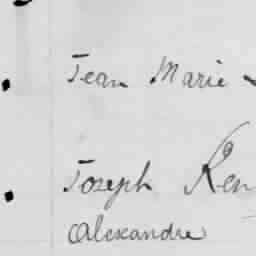 Jean Marie
Joseph Ren
Alexandre